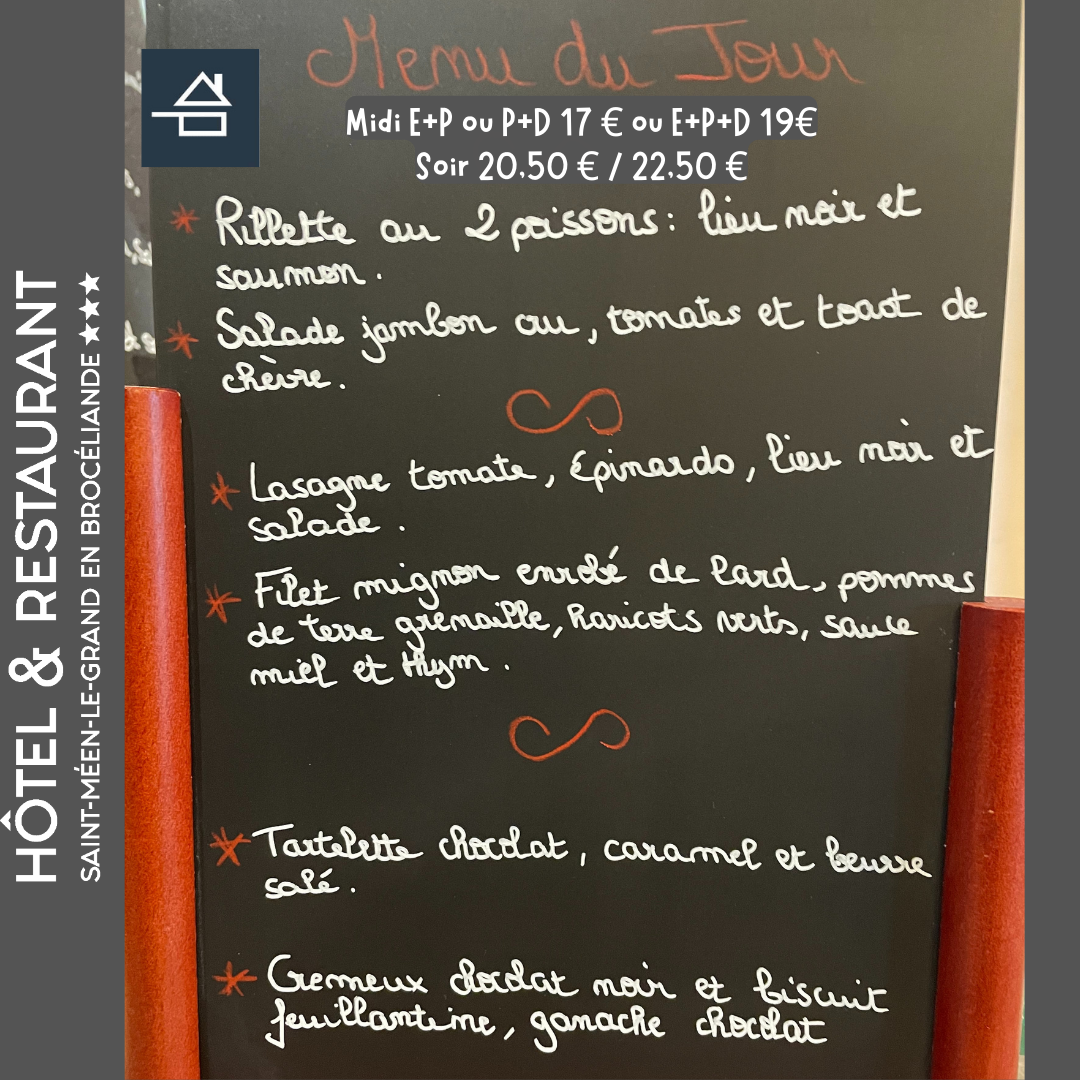 Menu du Jour
Midi E+P ou P+D 17 € ou E+P+D 19€
Soir 20,50 € / 22,50 €
* Rillette au 2 poissons : lieu noir et
saumon .
* Salade jambon cru , tomates et toast de
chèvre .
* Lasagne tomate , Epinards , lieu noir et
salade .
* Filet mignon enrobé de lard , pommes
de terre grenaille , haricots verts , sauce
miel et thym .
* Tartelette chocolat , caramel et beurre
salé .
* Cremeux chocolat noir et biscuit
feuillantine , ganache chocolat
HÔTEL & RESTAURANT
SAINT-MÉEN-LE-GRAND EN BROCÉLIANDE ★★★